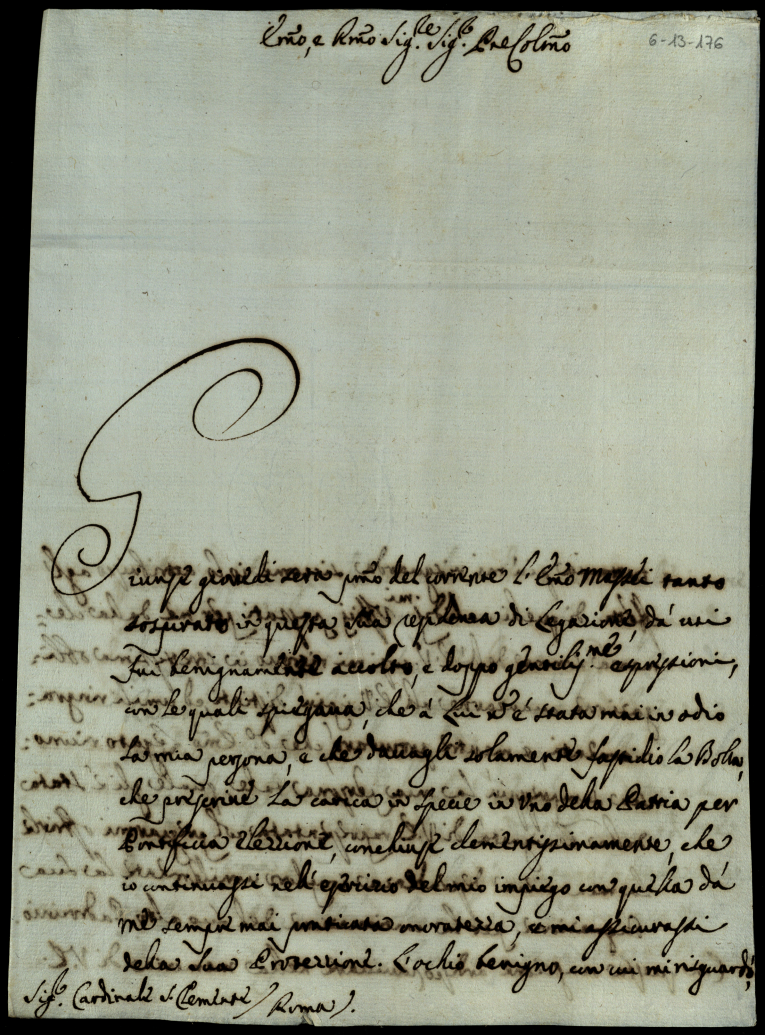 Emo, e Rmo Sig.re Sig.r Pne Colmo
6-13-176
Giunse giovedi sera pmo del corrente l'Emo Massei tanto
sospirato in questa sua residenza di Legazione da cui
fui benignamente accolto, e doppo gentiliss.me espressioni,
con le quali spiegava, che à Lui nè è stata mai in odio
la mia persona, e che davagli solamente fastidio la Bolla,
che prescrive la carica in specie in uno della Patria per
Pontificia elezione, conchiuse clementissimamente, che
io continuassi nell'esercizio del mio impiego con quella dà
mè sempre mai pratticata onoratezza, e mi assicurassi
della sua Protezzione. L'ochio benigno, con cui mi risguardò,
Sig.r Cardinale S. Clemente / Roma /.